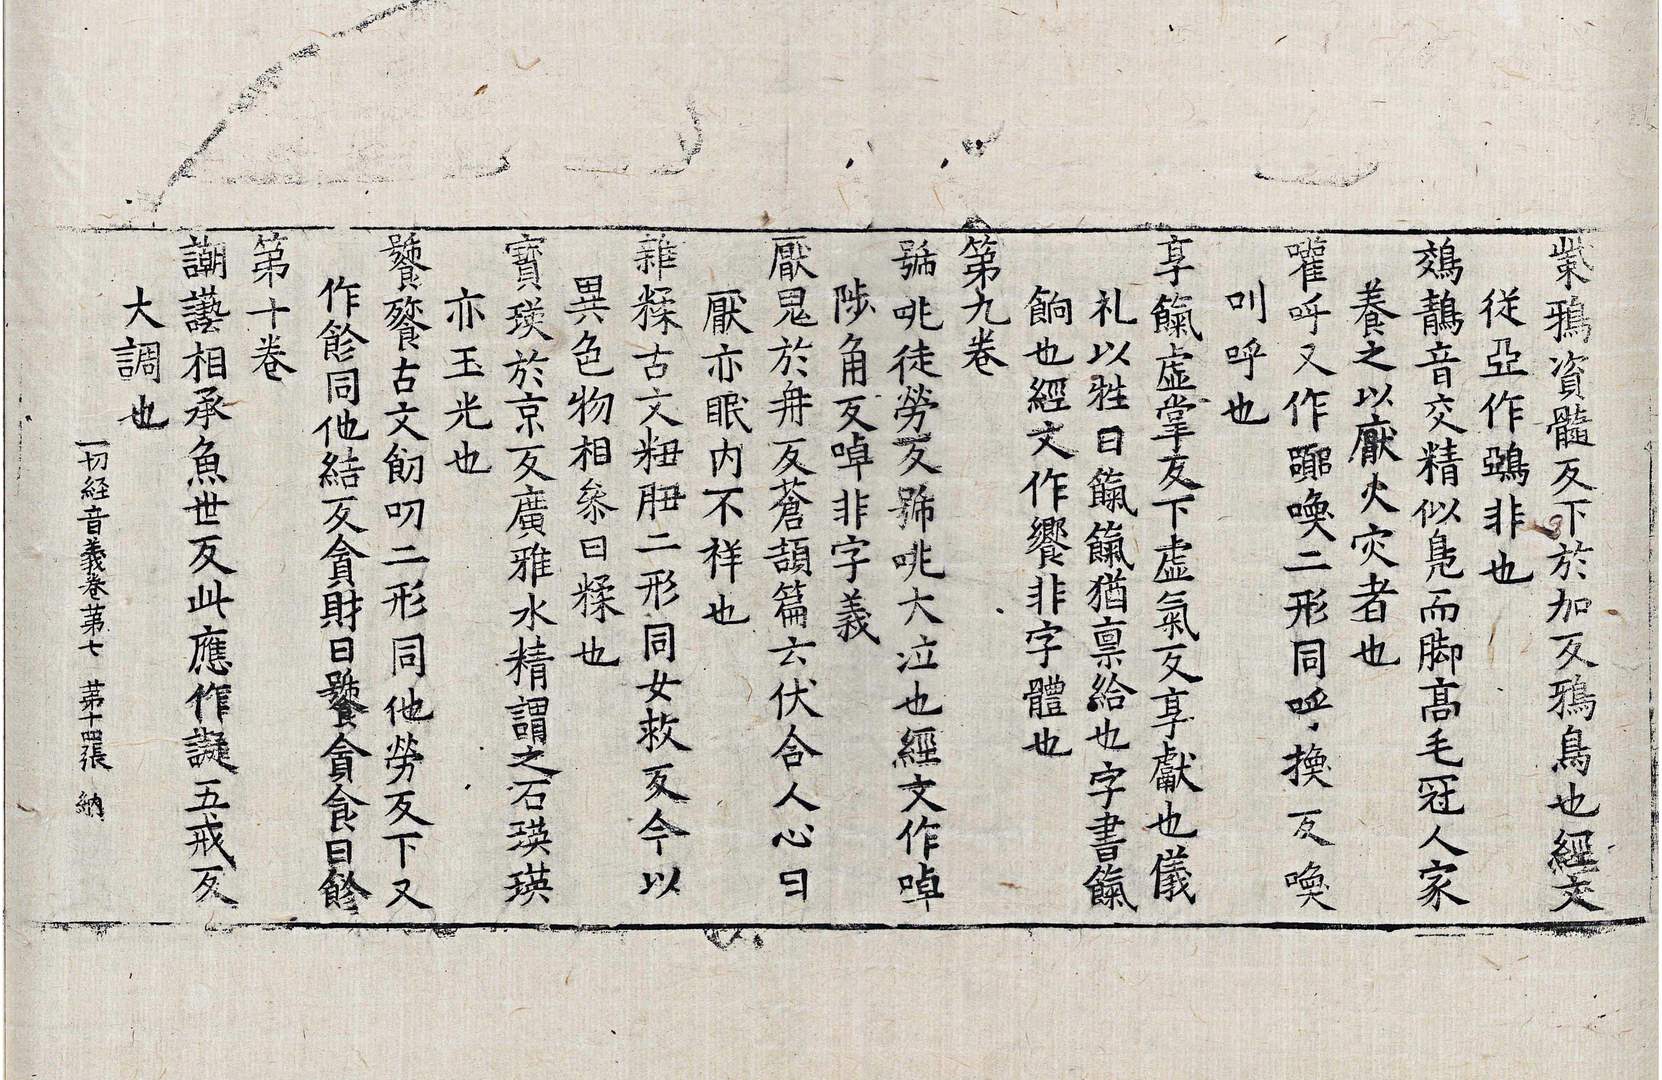 紫鵶資髓反下於加反鵶鳥也經文
從亞作鵶非也
鵁鶄音交精似鳧而脚髙毛冠人家
養之以厭火灾者也
嚾呼又作㗊喚二形同呼換反喚
叫呼也
享餼虛掌反下虛氣反享獻也儀
礼以牲曰餼餼猶禀給也字書餼
餉也經文作饗非字體也
第九卷
號咷徒勞反號咷大泣也經文作啅
陟角反啅非字義
厭鬼於冉反蒼頡篇云伏合人心曰
厭亦眠内不祥也
雜糅古文粈䏔二形同女救反今以
異色物相糝曰糅也
寳瑛於京反廣雅水精謂之石瑛瑛
亦玉光也
饕餮古文飻叨二形同他勞反下又
作飻同他結反貪財曰饕貪食曰飻
第十卷
謿讛相承魚世反此應作譺五戒反
大調也
一切経音義卷苐七　苐十四張　納